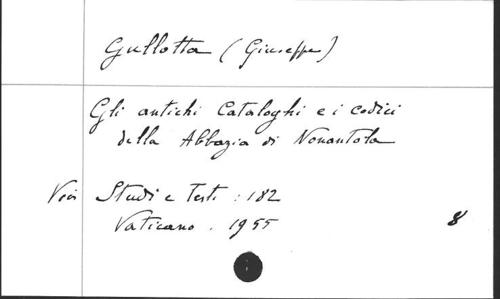 Gullotta (Giuseppe)
Gli antichi Cataloghi e i codici
della Abbazia di Nonantola
Studi e Testi : 182
Vaticano . 1955
8